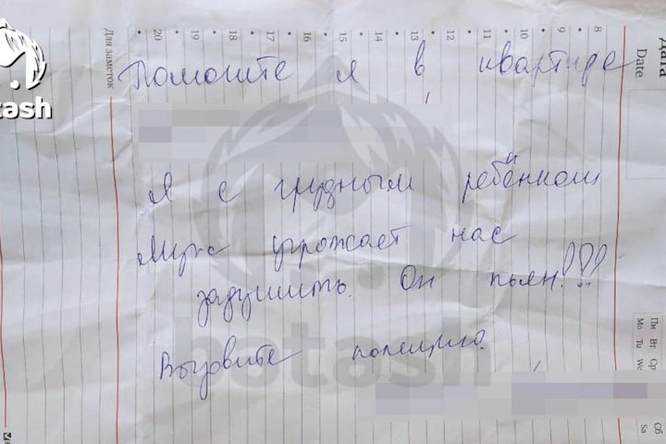 Помогите я в квартире
Я с грудным ребёнком
Муж угрожает нас
задушить. Он пьян!!!
Вызовите полицию.
Для заметок
20 19 18 17 16 15 14 13 12 11 10 9 8
Дата
Date
Пн Вт Ср
Mo Tu We
Сб
Sa
botash